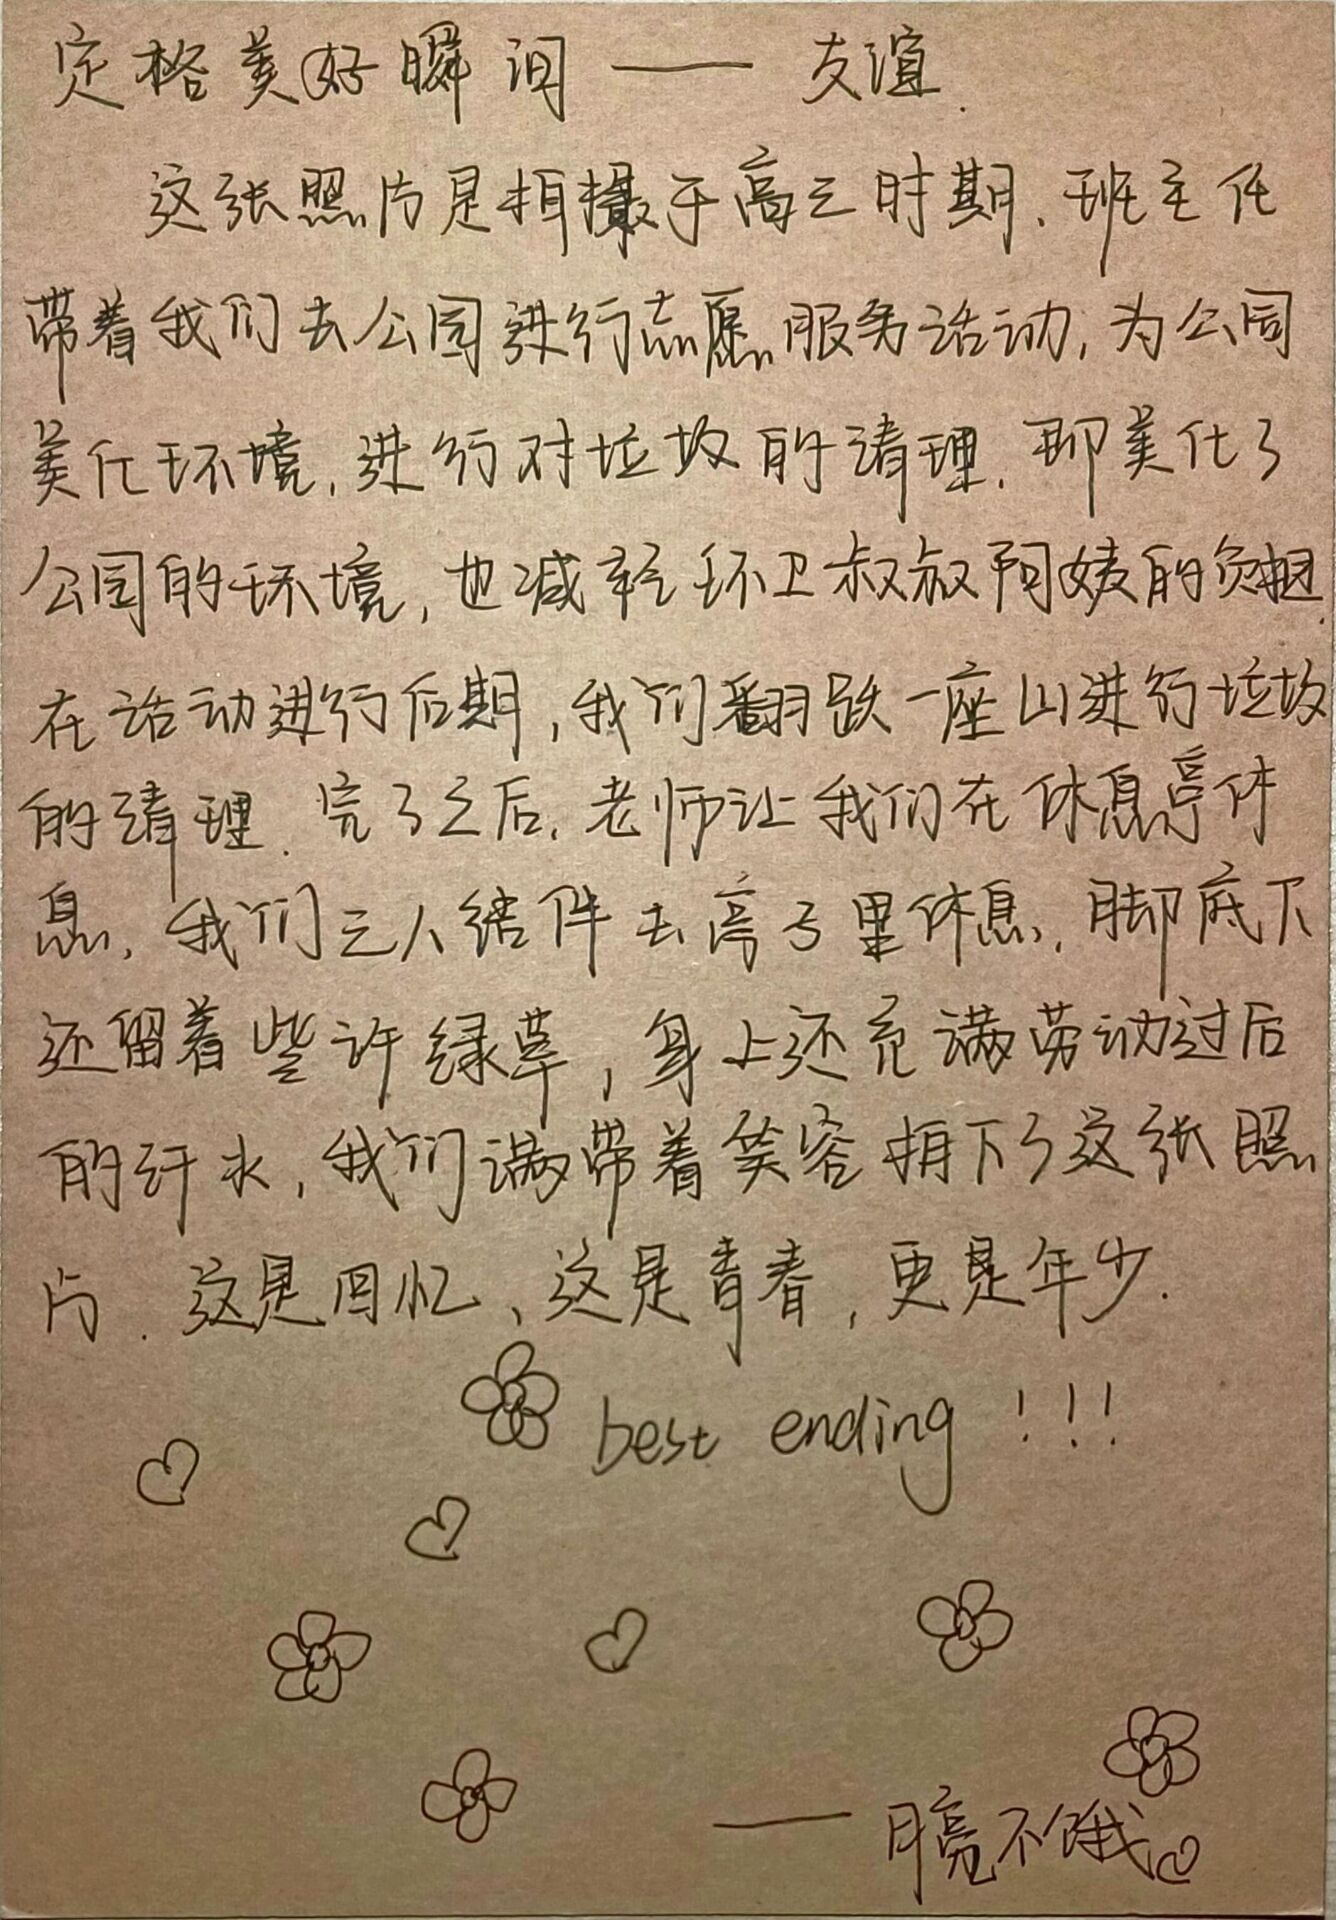 定格美好瞬间——友谊.
这张照片是拍摄于高三时期.班主任
带着我们去公园进行志愿服务活动,为公园
美化环境,进行对垃圾的清理.即美化了
公园的环境,也减轻环卫叔叔阿姨的负担.
在活动进行后期,我们翻跃一座山进行垃圾
的清理.完了之后,老师让我们在休息亭休
息,我们三人结伴去亭子里休息,脚底下
还留着些许绿草,身上还充满劳动过后
的汗水,我们满带着笑容拍下了这张照
片.这是回忆,这是青春,更是年少.
best ending!!!
——月亮不饿